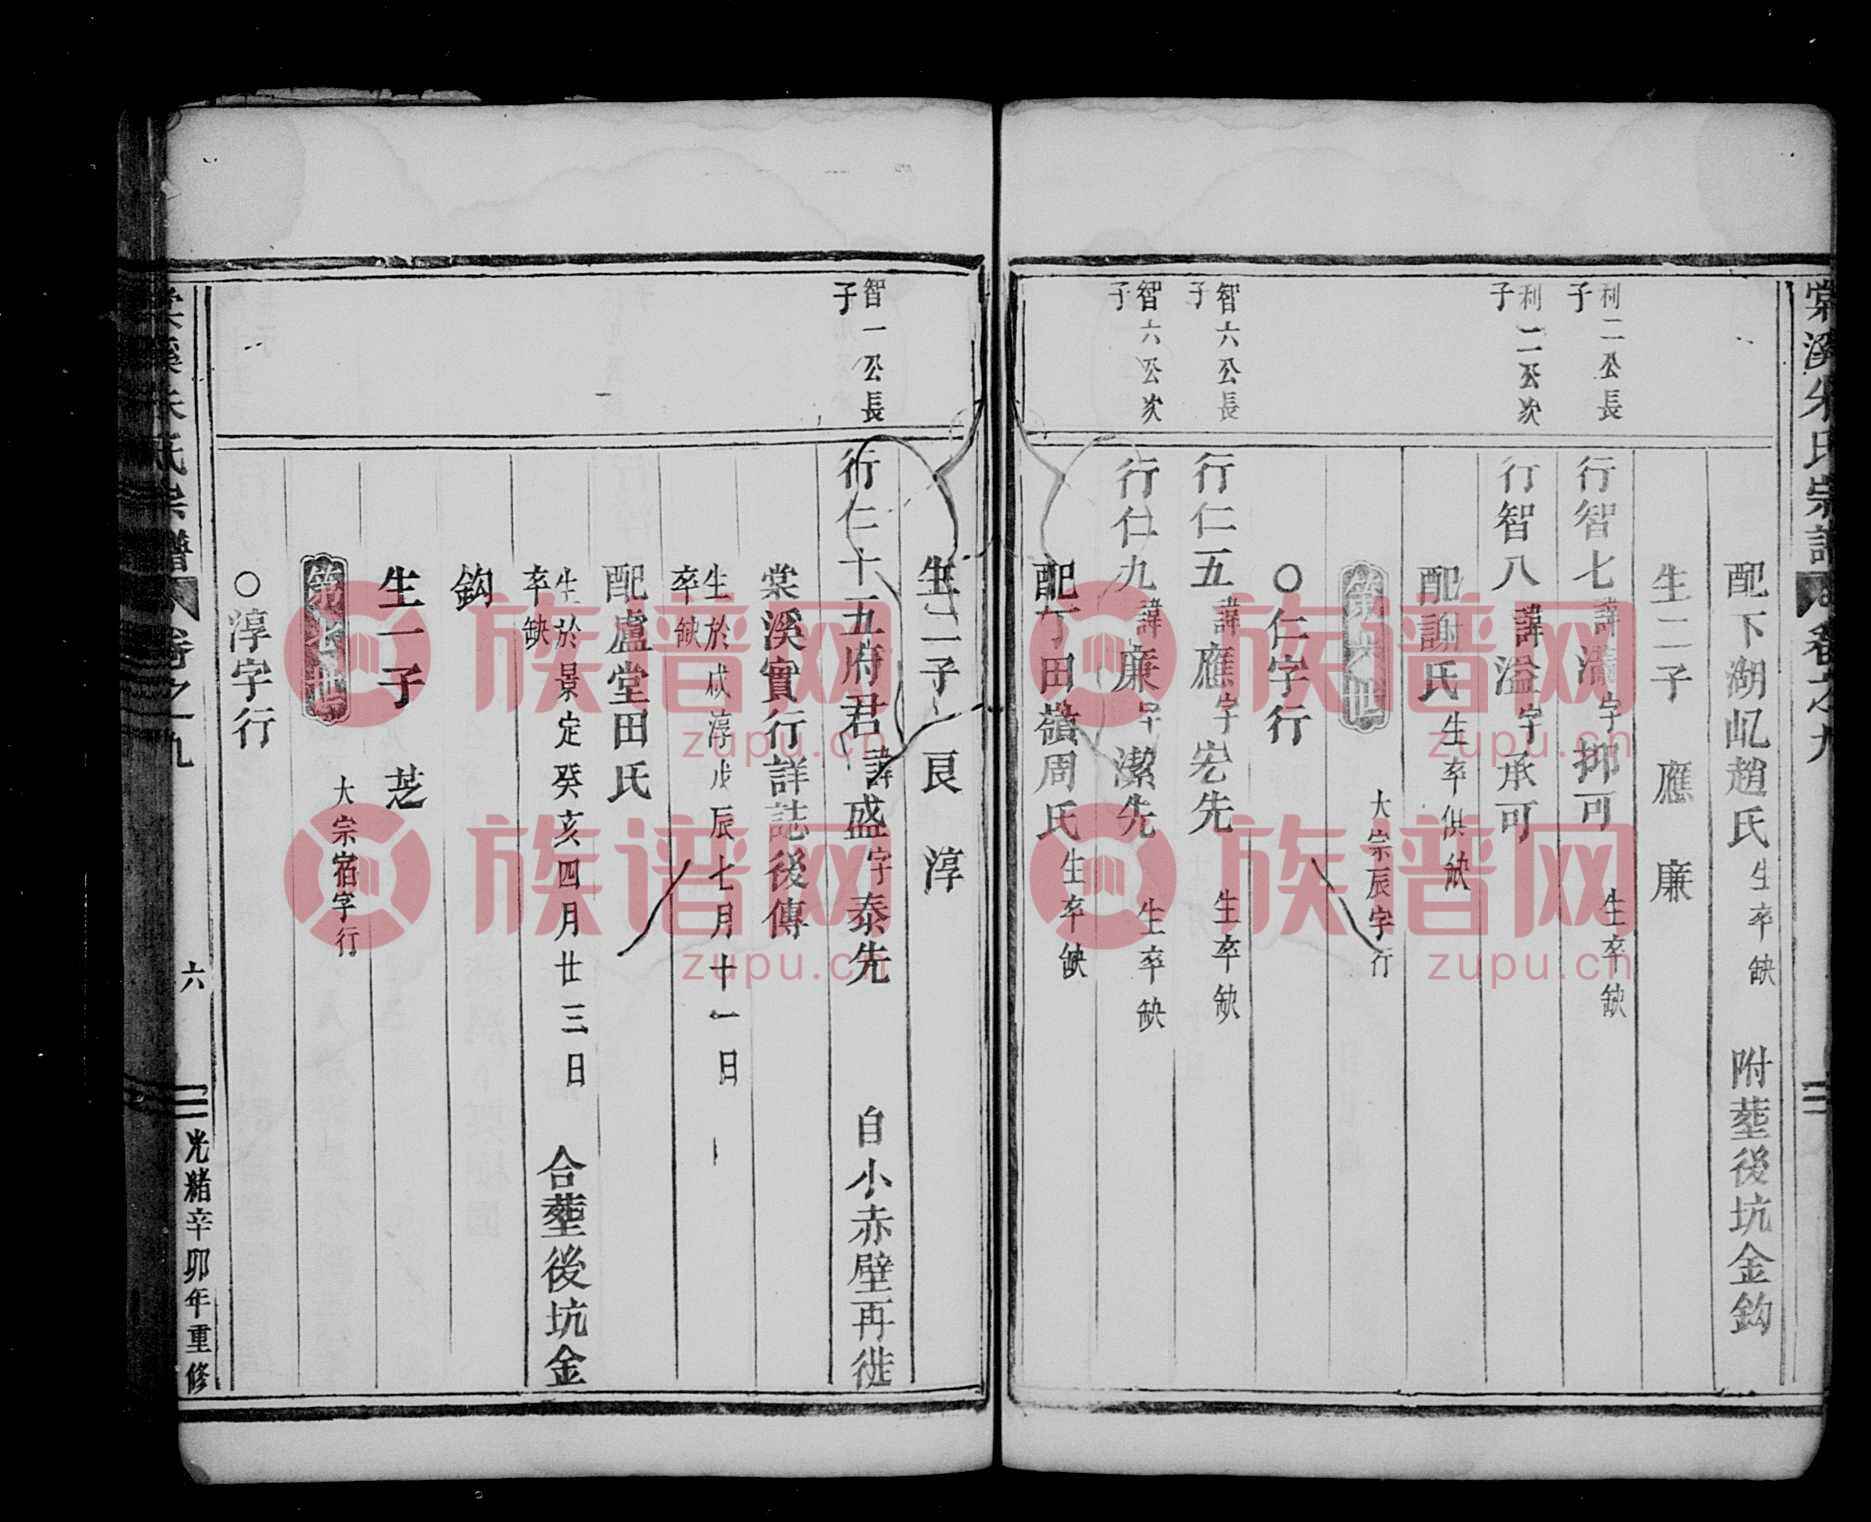 棠溪朱氏宗譜 卷之九
配下湖屺趙氏 生卒缺 附塟後坑金鈎
生二子 應 廉
利二公長子
行智七 諱濤 字抑可 生卒缺
利二公次子
行智八 諱溢 字承可
配謝氏 生卒俱缺
大宗辰字行
○仁字行
智六公長子
行仁五 諱應 字宏先 生卒缺
智六公次子
行仁九 諱廉 字潔先 生卒缺
配丁田嶺周氏 生卒缺
生二子 艮 淳
智一公長子
行仁十五府君 諱盛 字泰先 自小赤壁再徙
棠溪實行詳誌後傳
生於咸淳戊辰七月十一日
卒缺
配盧堂田氏
生於景定癸亥四月廿三日
卒缺
合塟後坑金
鈎
生一子 芝
大宗宿字行
○淳字行
棠溪朱氏宗譜 卷之九
六
光緒辛卯年重修
族谱网
zupu.cn
族谱网
zupu.cn
族谱网
zupu.cn
族谱网
zupu.cn